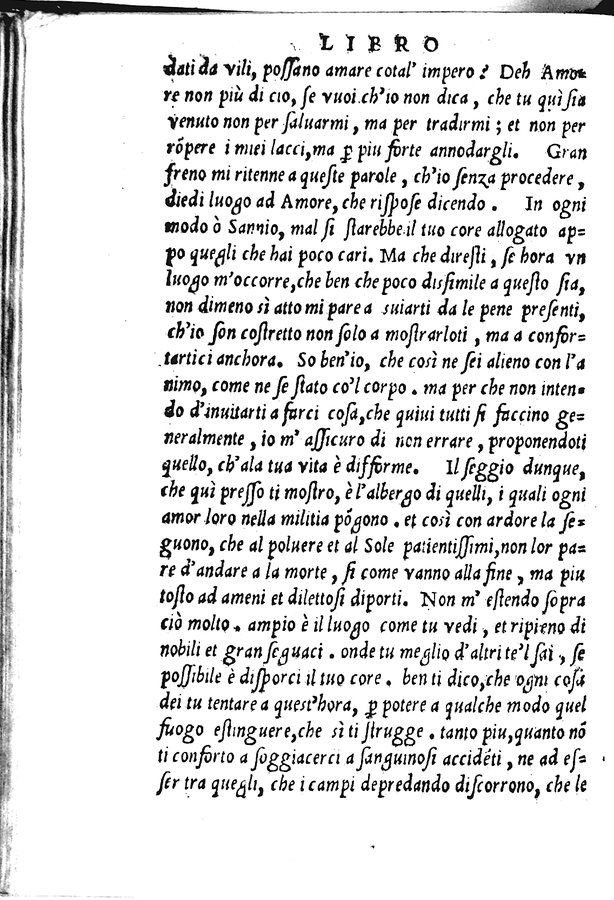 LIBRO
dati da vili, poſſano amare cotal' impero? Deh Amo=
re non più di cio, ſe vuoi ch'io non dica, che tu quì ſia
venuto non per ſaluarmi, ma per tradirmi; et non per
rõpere i miei lacci, ma ꝑ piu forte annodargli. Gran
freno mi ritenne a queſte parole, ch'io ſenza procedere,
diedi luogo ad Amore, che riſpoſe dicendo. In ogni
modo ò Sannio, mal ſi ſtarebbe il tuo core allogato ap=
po quegli che hai poco cari. Ma che direſti, ſe hora vn
luogo m'occorre, che ben che poco diſſimile a queſto ſia,
non dimeno sì atto mi pare a suiarti da le pene preſenti,
ch'io ſon coſtretto non ſolo a moſtrarloti, ma a confor=
tartici anchora. So ben'io, che così ne ſei alieno con l'a
nimo, come ne ſe ſtato co'l corpo. ma per che non inten=
do d'inuitarti a farci coſa, che quiui tutti ſi faccino ge=
neralmente, io m' aſſicuro di non errare, proponendoti
quello, ch'ala tua vita è difforme. Il ſeggio dunque,
che quì preſſo ti moſtro, è l'albergo di quelli, i quali ogni
amor loro nella militia põgono. et così con ardore la ſe=
guono, che al poluere et al Sole patientiſſimi, non lor pa=
re d'andare a la morte, ſi come vanno alla fine, ma piu
toſto ad ameni et dilettoſi diporti. Non m' eſtendo ſopra
ciò molto. ampio è il luogo come tu vedi, et ripieno di
nobili et gran ſeguaci. onde tu meglio d'altri te'l ſai, ſe
poſſibile è diſporci il tuo core. ben ti dico, che ogni coſa
dei tu tentare a queſt'hora, ꝑ potere a qualche modo quel
fuogo eſtinguere, che sì ti ſtrugge. tanto piu, quanto nõ
ti conforto a ſoggiacerci a ſanguinoſi accidẽti, ne ad eſ=
ſer tra quegli, che i campi depredando diſcorrono, che le